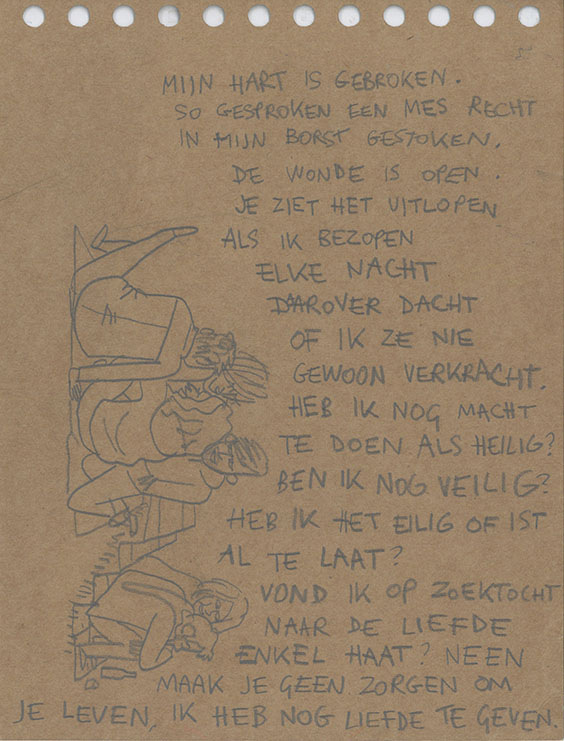 MIJN HART IS GEBROKEN.
SO GESPROKEN EEN MES RECHT
IN MIJN BORST GESTOKEN.
DE WONDE IS OPEN.
JE ZIET HET UITLOPEN
ALS IK BEZOPEN
ELKE NACHT
DAAROVER DACHT
OF IK ZE NIE
GEWOON VERKRACHT.
HEB IK NOG MACHT
TE DOEN ALS HEILIG?
BEN IK NOG VEILIG?
HEB IK HET EILIG OF IST
AL TE LAAT?
VOND IK OP ZOEKTOCHT
NAAR DE LIEFDE
ENKEL HAAT? NEEN
MAAK JE GEEN ZORGEN OM
JE LEVEN, IK HEB NOG LIEFDE TE GEVEN.